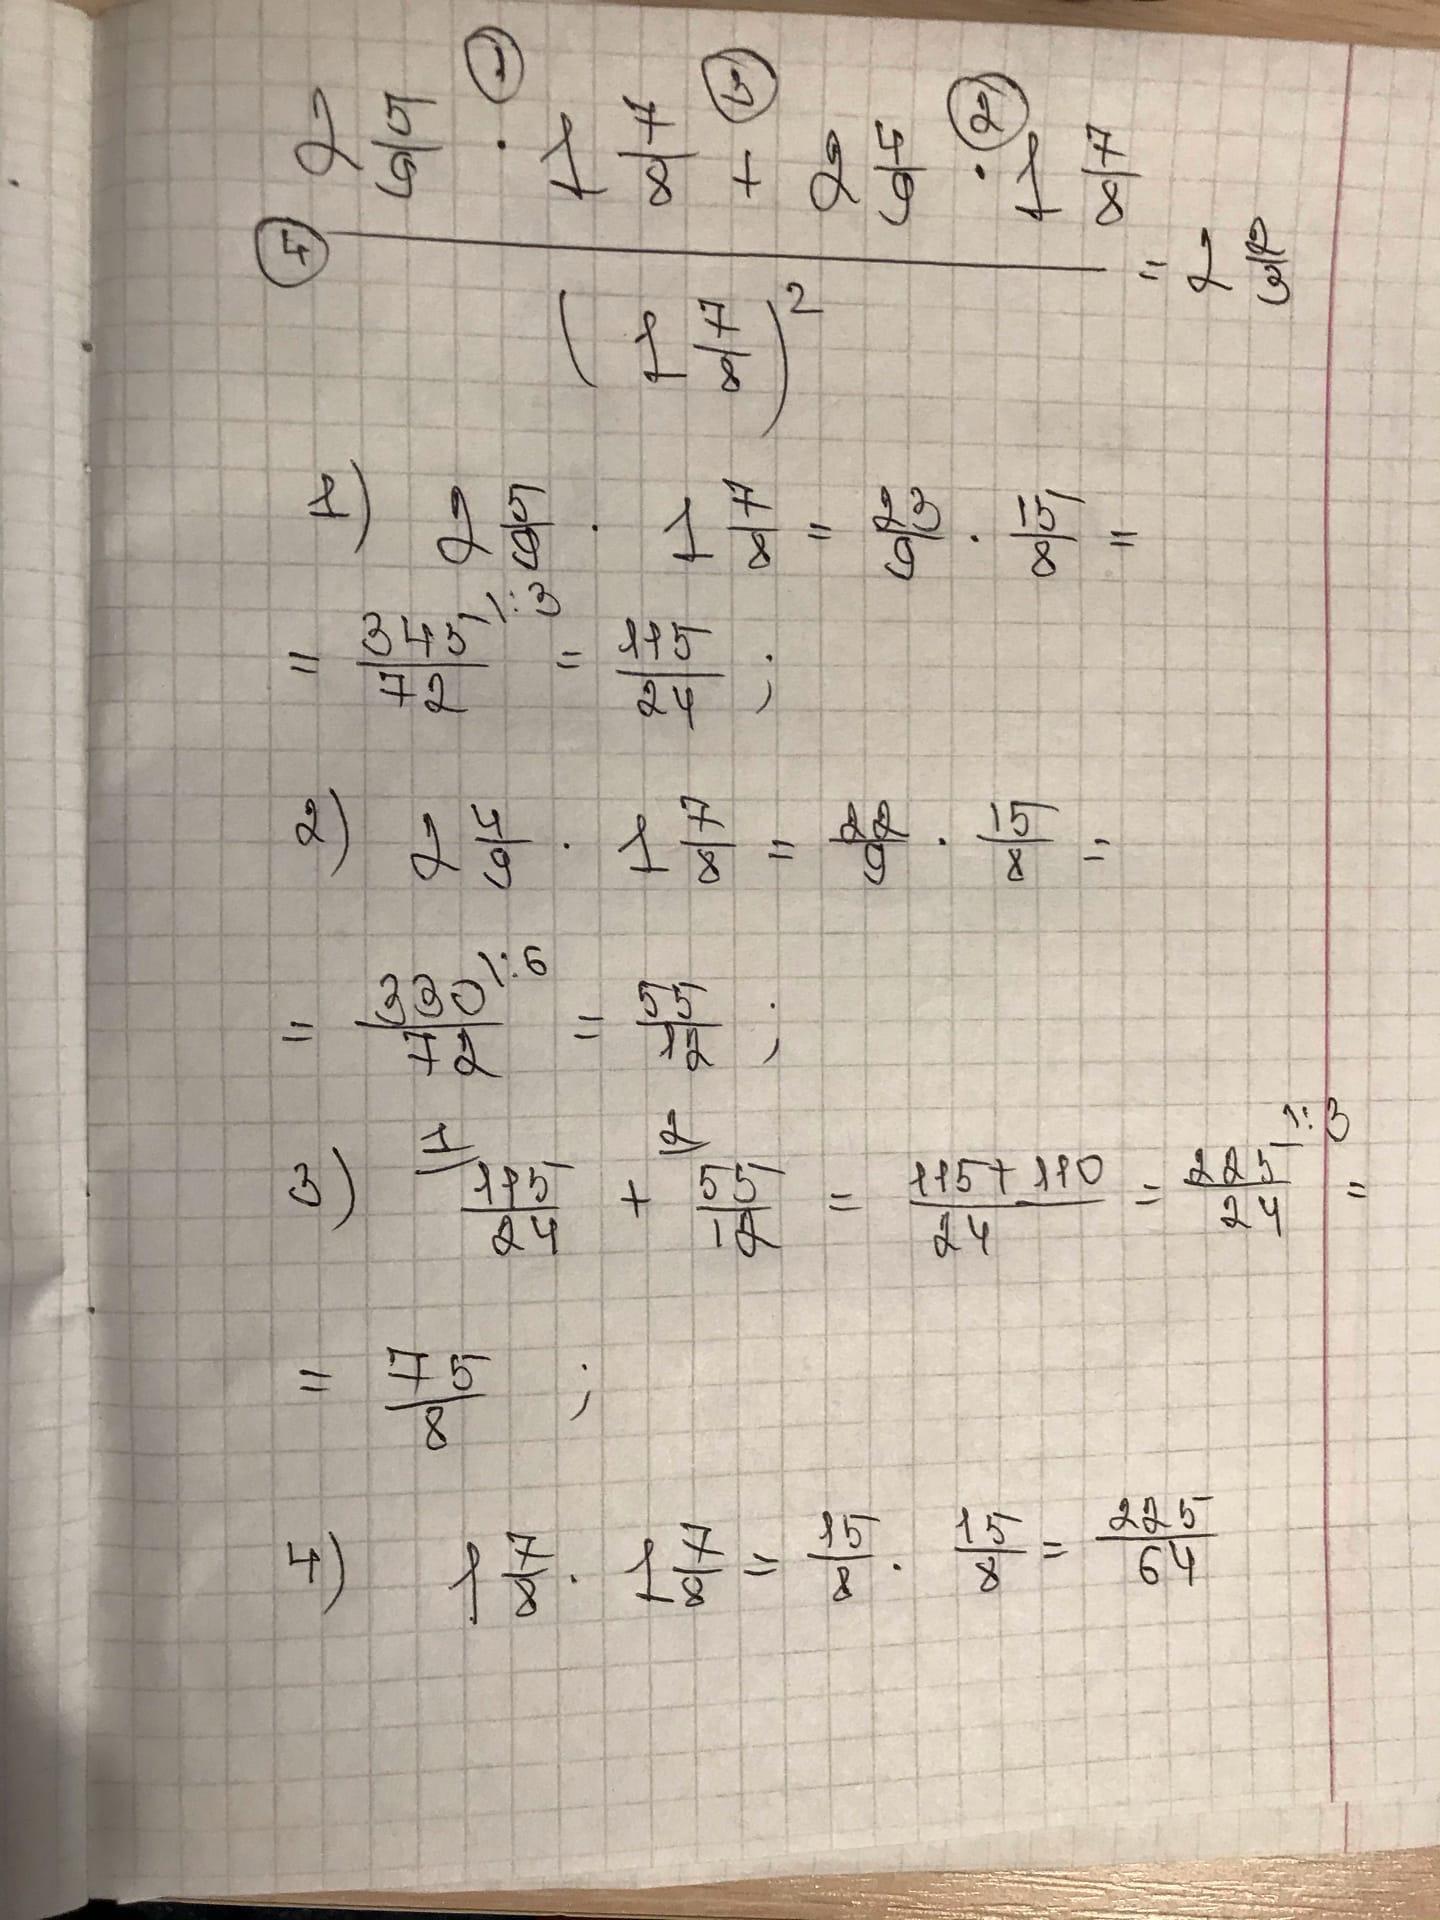 ① ③ ②
2 5/9 · 1 7/8 + 2 4/9 · 1 7/8
④ ───────────── = 2 2/3
(1 7/8)²
1) 2 5/9 · 1 7/8 = 23/9 · 15/8 =
= 345/72 |:3 = 115/24 ;
2) 2 4/9 · 1 7/8 = 22/9 · 15/8 =
= 330/72 |:6 = 55/12 ;
3) 115/24 \1 + 55/12 \2 = (115+110)/24 = 225/24 |:3 =
= 75/8 ;
4) 1 7/8 · 1 7/8 = 15/8 · 15/8 = 225/64